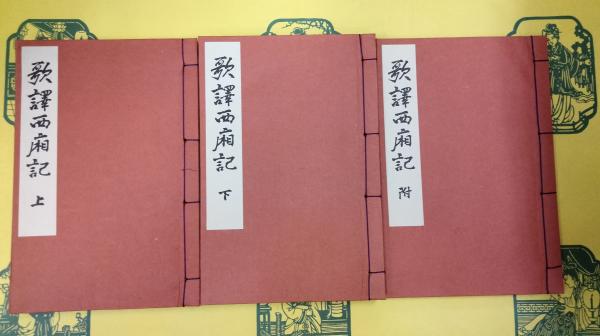 歌譯西廂記 上
歌譯西廂記 下
歌譯西廂記 附